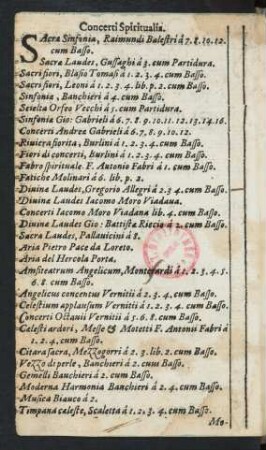 Concerti Spiritualia.
SAcræ Sinfonia, Raimundi Balestri á 7.8.10.12.
cum Basso.
Sacra Laudes, Gussaghi á 3. cum Partidura.
Sacri fiori, Blasio Tomasi á 1.2.3.4. cum Basso.
Sacri fiori, Leoni á 1.2.3.4. lib. p. 2. cum Basso.
Sinfonia, Banchieri á 4. cum Basso.
Scielta Orfeo Vecchi á 5. cum Partidura.
Sinfonia Gio: Gabrieli á 6.7.8.9.10.11.12.13.14.16.
Concerti Andrea Gabrieli á 6.7.8.9.10.12.
Riviera fiorita, Burlini á 1.2.3.4. cum Basso.
Fiori di concerti, Burlini á 1.2.3.4. cum Basso.
Fabro spirituale F. Antonio Fabri á 1. cum Basso.
Fatiche Molinari á 6. lib. p. 2.
Diuine Laudes, Gregorio Allegri á 2.3.4. cum Basso.
Diuine Laudes Iacomo Moro Viadana.
Concerti Iacomo Moro Viadana lib. 4. cum Basso.
Diuine Laudes Gio: Battista Riccio á 2. cum Basso.
Sacra Laudes, Pallauicini á 8.
Aria Pietro Pace da Loreto.
Aria del Hercola Porta.
Amfiteatrum Angelicum, Montesardi á 1.2.3.4.5.
6.8. cum Basso.
Angelicus concentus Vernitii á 2.3.4. cum Basso.
Celestium applausum Vernitii á 1.2.3.4. cum Basso.
Concerti Octauii Vernitii á 5.6.8. cum Basso.
Celesti ardori, Messe & Motetti F. Antonii Fabri á
1.2.4. cum Basso.
Citara sacra, Mezzogorri á 2.3. lib. 2. cum Basso.
Vezzo di perle, Banchieri á 2. cum Basso.
Gemelli Banchieri á 2. cum Basso.
Moderna Harmonia Banchieri á 2.4. cum Basso.
Musica Bianco á 2.
Timpana caleste, Scaletta á 1.2.3.4. cum Basso.
Mo-